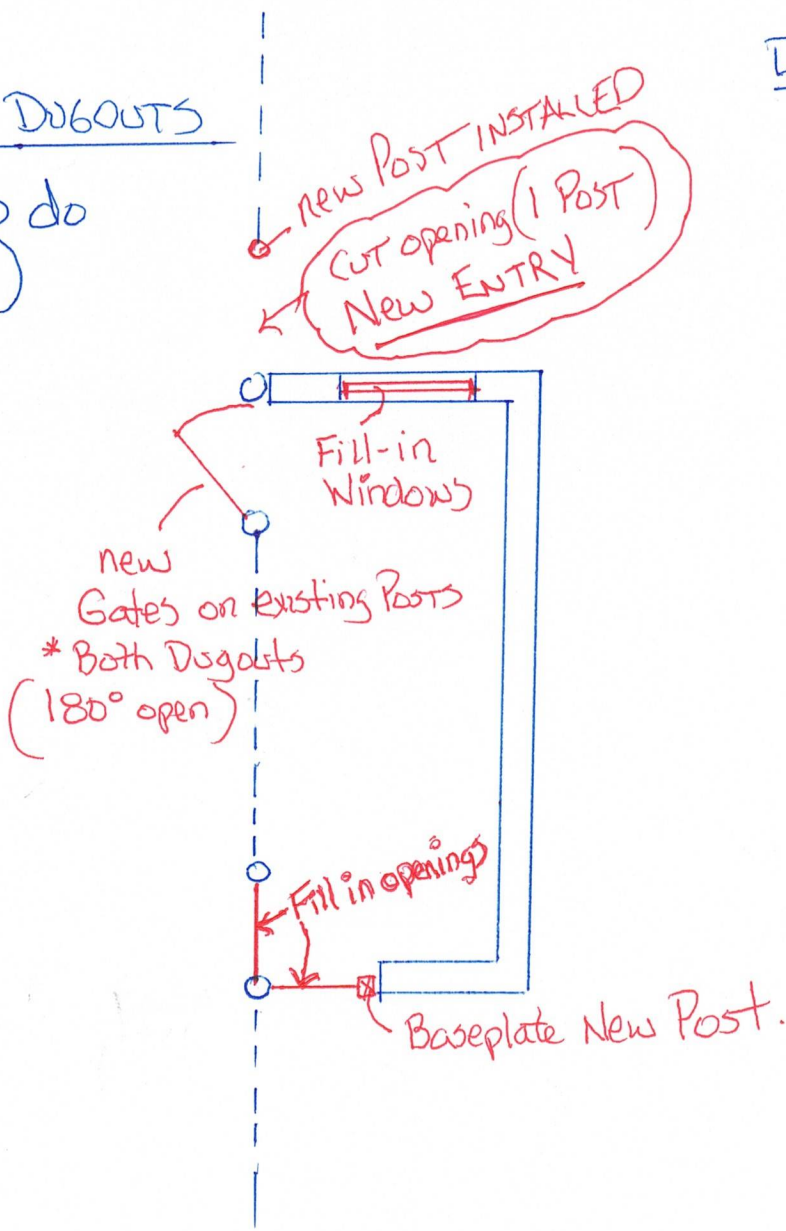 DUGOUTS
do
new POST INSTALLED
CUT opening (1 POST)
New ENTRY
Fill-in
Windows
new
Gates on existing Posts
* Both Dugouts
(180° open)
Fill in openings
Baseplate New Post.